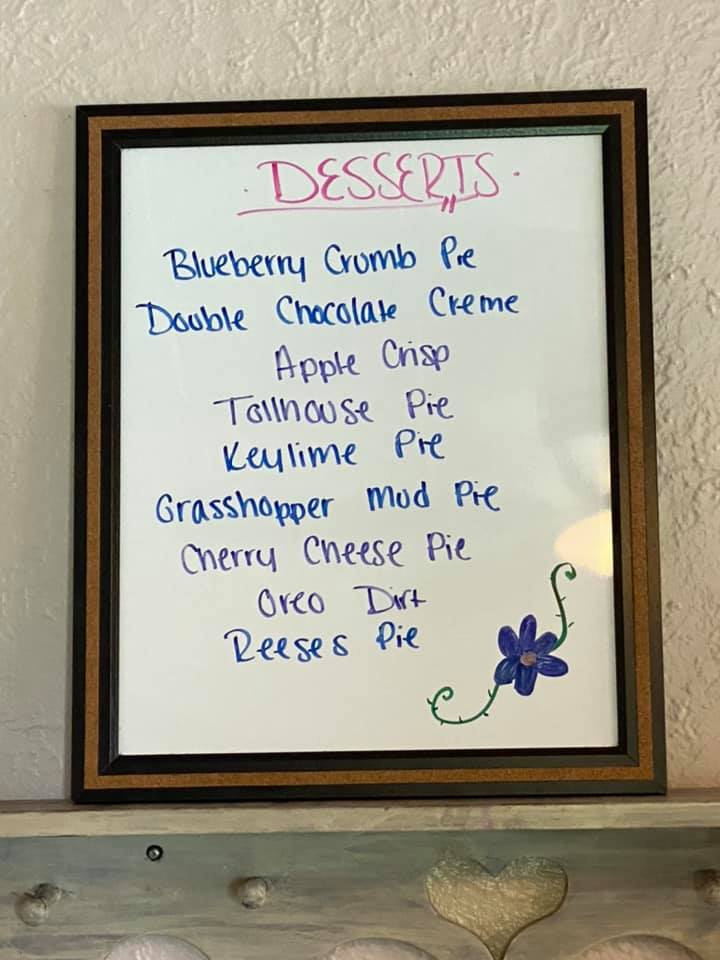 DESSERTS
Blueberry Crumb Pie
Double Chocolate Creme
Apple Crisp
Tollhouse Pie
Keylime Pie
Grasshopper Mud Pie
Cherry Cheese Pie
Oreo Dirt
Reeses Pie